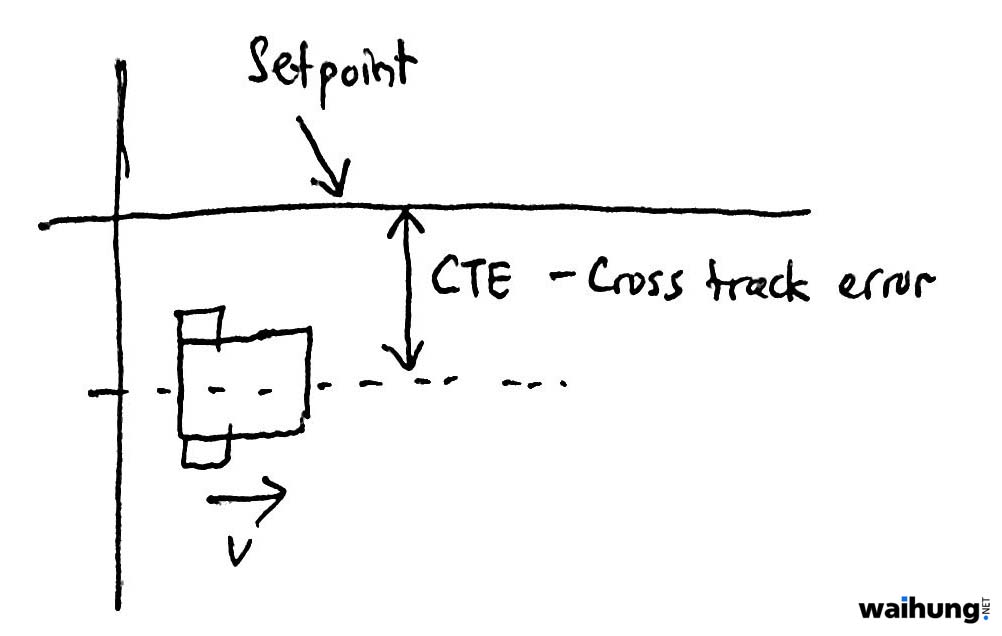 Setpoint
CTE - Cross track error
V
waihung.NET